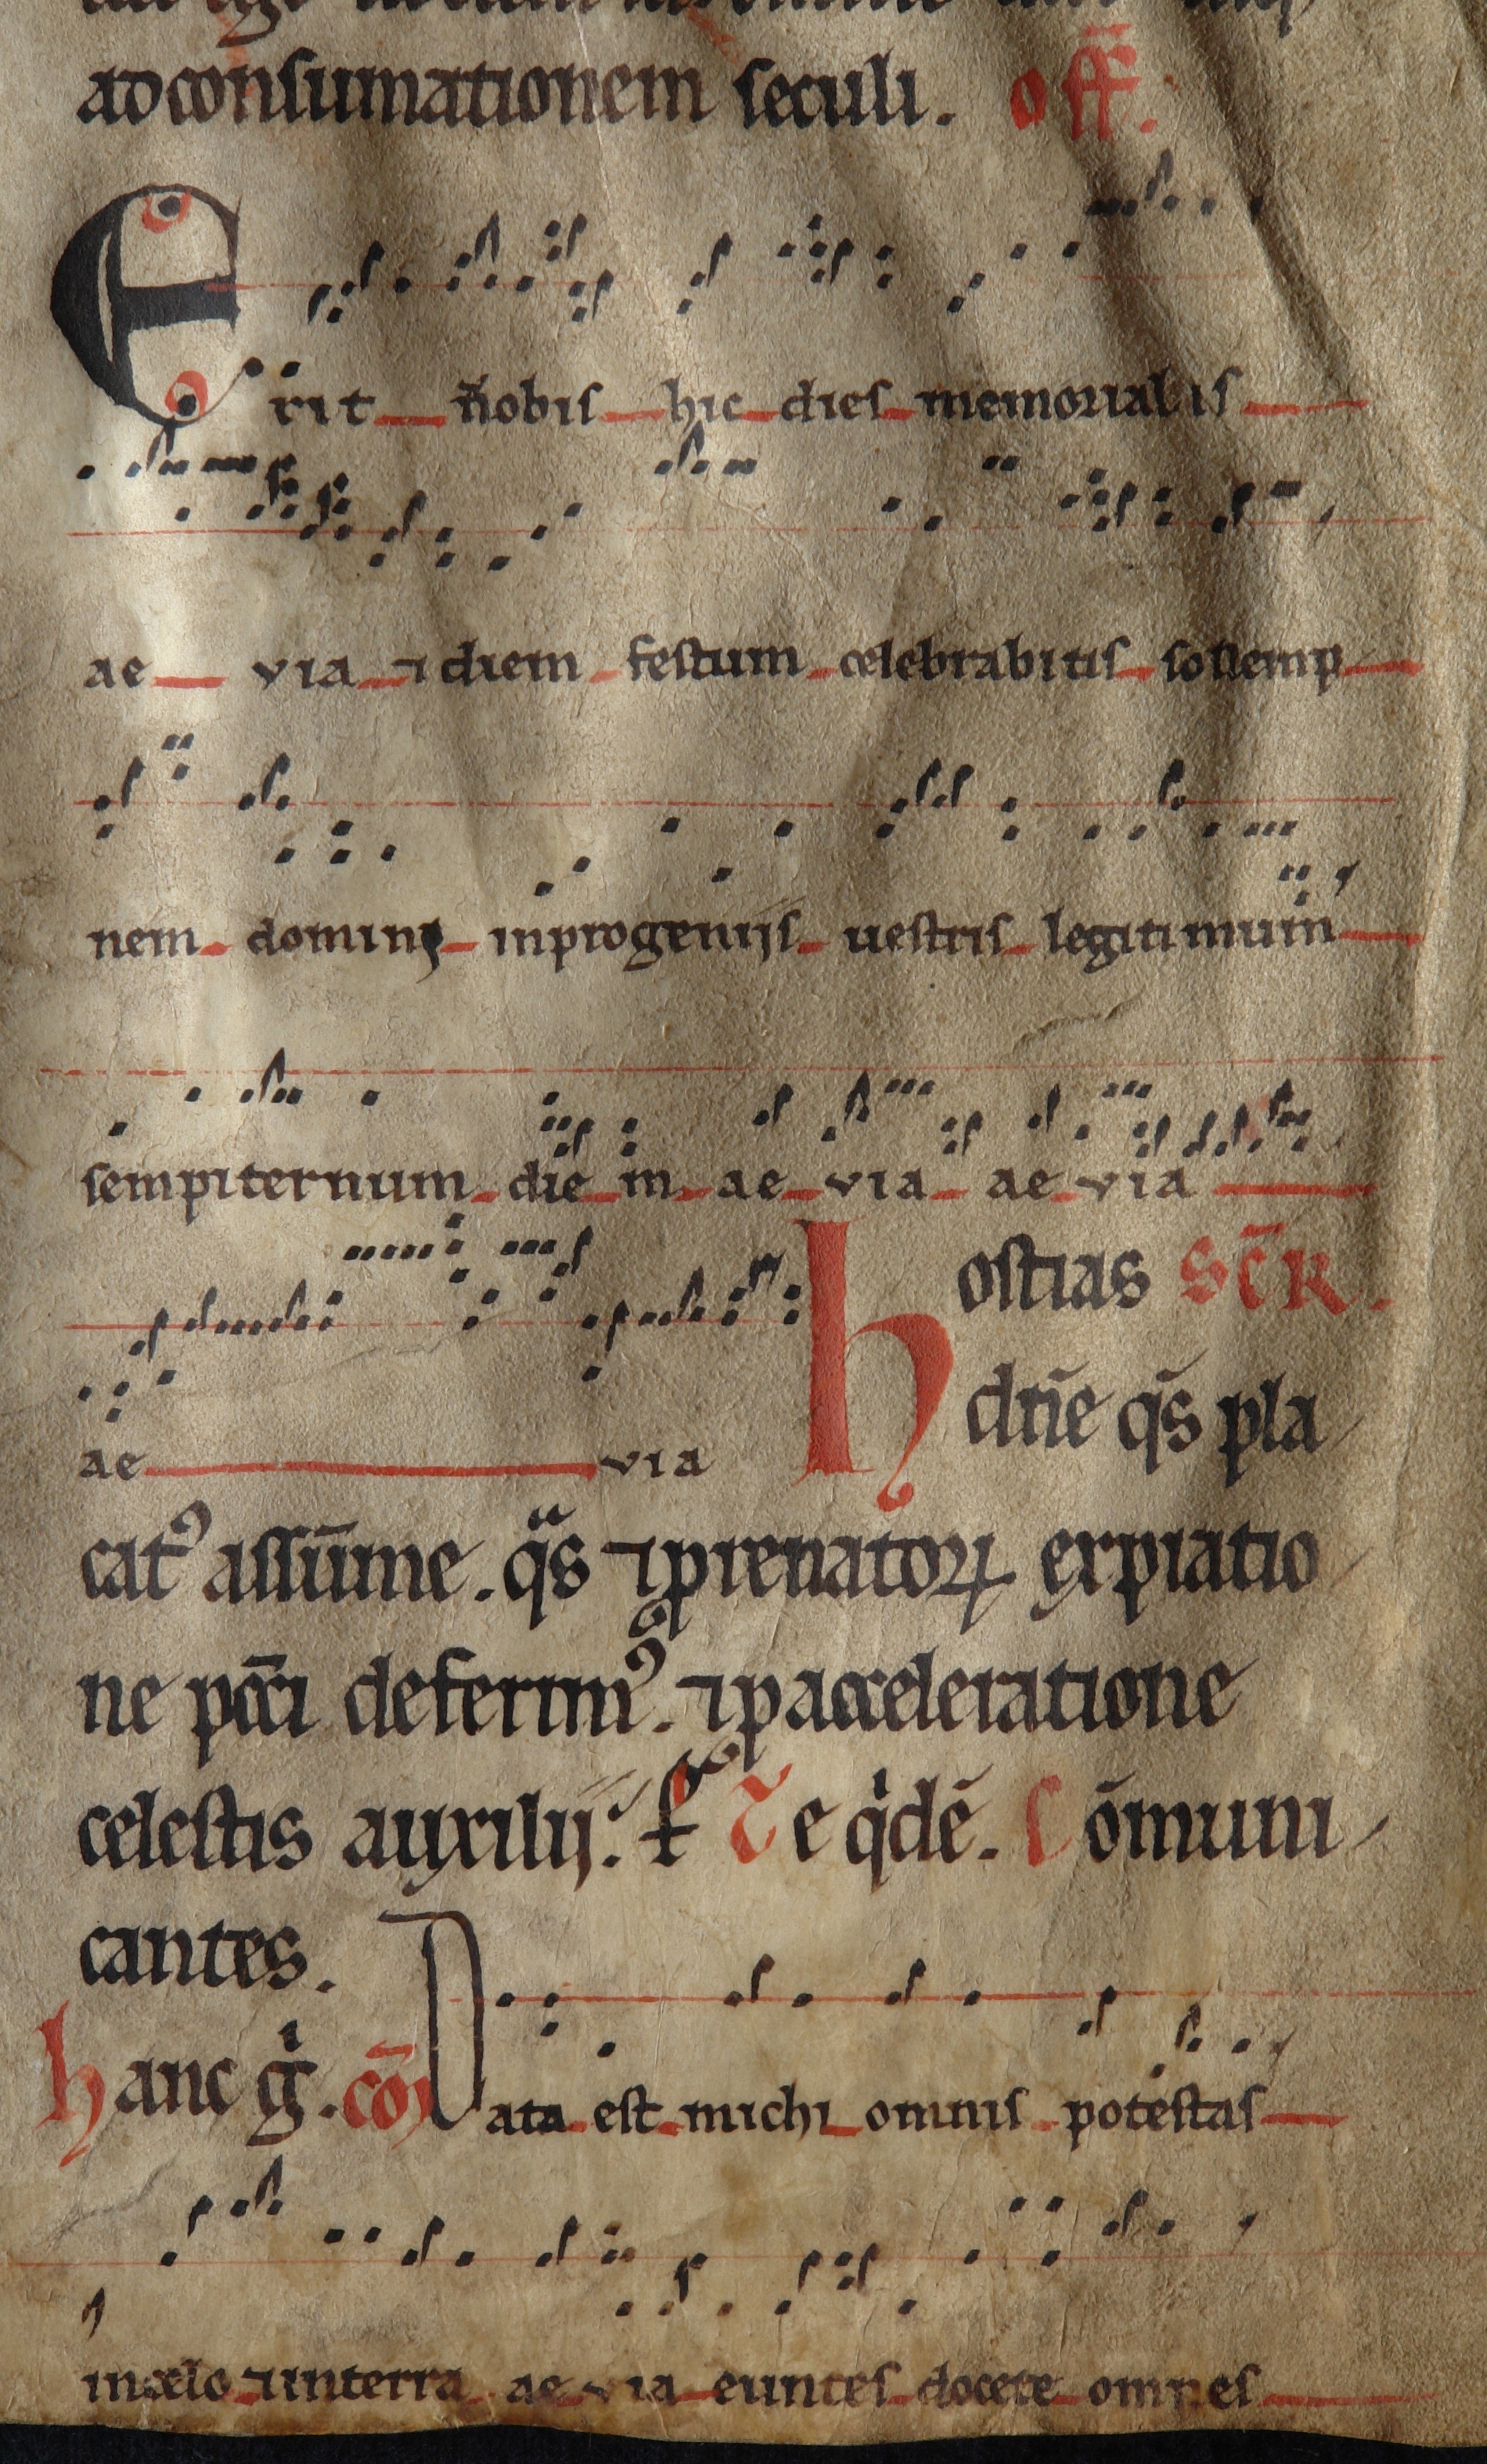 adconsumationem seculi. off̄.
Erit ñobis hic dies memorialis
ae via ⁊ diem festum celebrabitis sollemp
nem dominꝫ inprogeniijs uestris legitimum̄
sempiternum die m ae via ae via
ae via hostias Sc̄R.
dn̄e qs̄ pla
cat᷒ assūme. qᷓs ⁊p renatoꝝ expiatio
ne pcc̄i deferim᷒. ⁊p acceleratione
celestis auxilij: Te qͥdē. Cōmuni
cantes.
hanc gͥ. cō Data est michi omnis potestas
incelo ⁊interra ae via euntes docete omnes